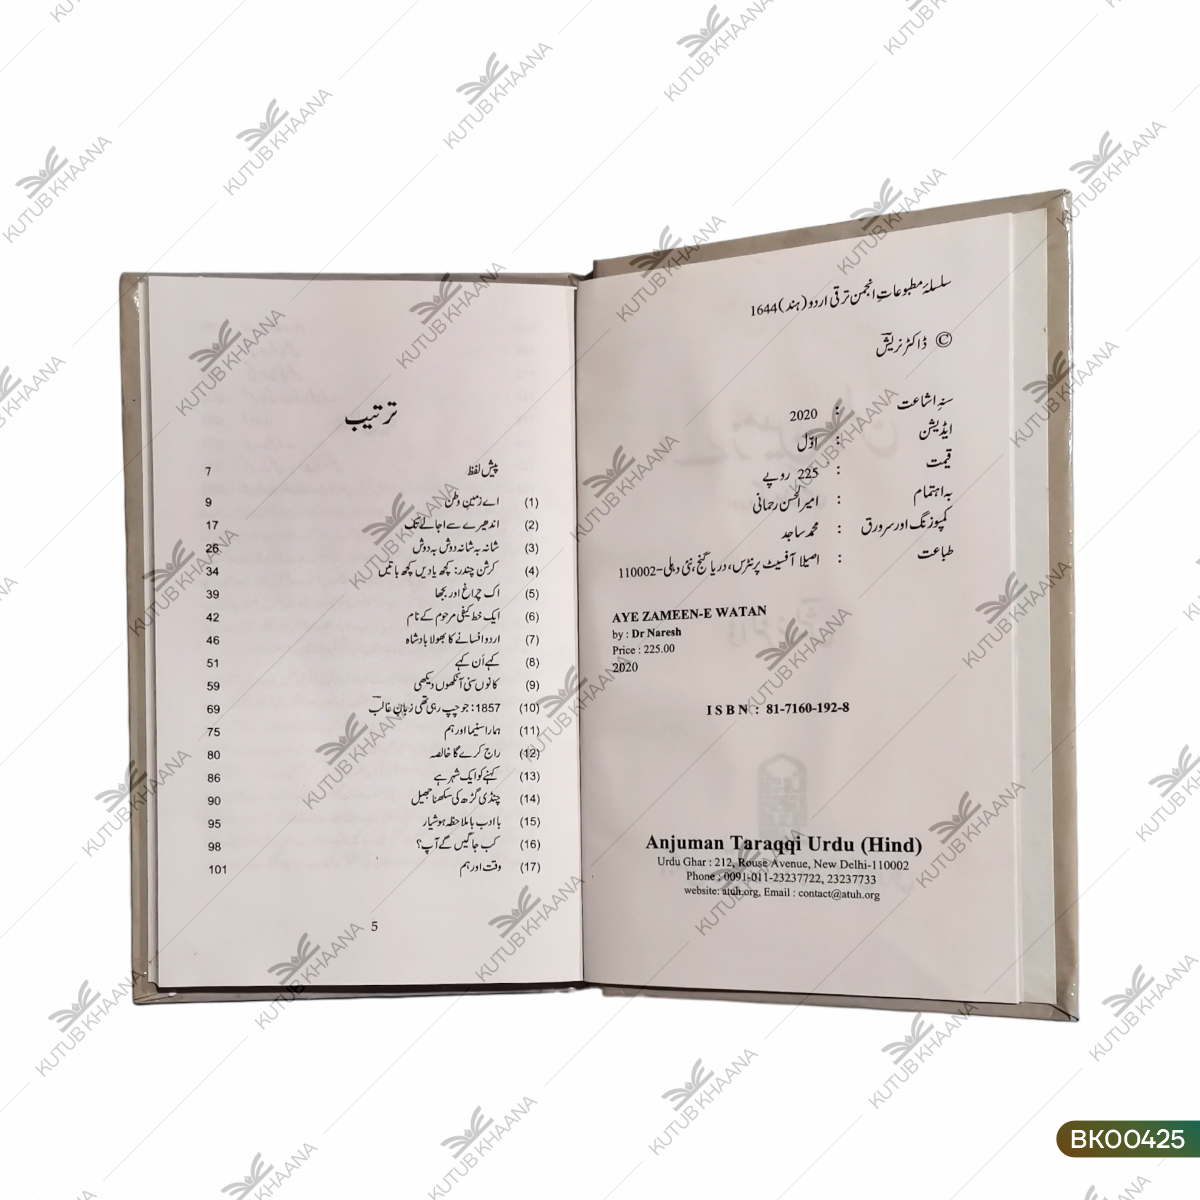 سلسلۂ مطبوعات انجمن ترقی اردو (ہند) 1644
© ڈاکٹر نریش
سنہ اشاعت : 2020
ایڈیشن : اوّل
قیمت : 225 روپے
بہ اہتمام : امیر الحسن رحمانی
کمپوزنگ اور سرورق : محمد ساجد
طباعت : اصیلا آفسیٹ پرنٹرس، دریا گنج، نئی دہلی-110002
AYE ZAMEEN-E WATAN
by : Dr Naresh
Price : 225.00
2020
ISBN : 81-7160-192-8
Anjuman Taraqqi Urdu (Hind)
Urdu Ghar : 212, Rouse Avenue, New Delhi-110002
Phone : 0091-011-23237722, 23237733
website: atuh.org, Email : contact@atuh.org
ترتیب
پیش لفظ 7
(1) اے زمینِ وطن 9
(2) اندھیرے سے اجالے تک 17
(3) شانہ بہ شانہ دوش بہ دوش 26
(4) کرشن چندر: کچھ یادیں کچھ باتیں 34
(5) اک چراغ اور بجھا 39
(6) ایک خط کیفی مرحوم کے نام 42
(7) اردو افسانے کا بھولا بادشاہ 46
(8) کہے اَن کہے 51
(9) کانوں سنی آنکھوں دیکھی 59
(10) 1857: جو چپ رہی تھی زبانِ غالبؔ 69
(11) ہمارا سنیما اور ہم 75
(12) راج کرے گا خالصہ 80
(13) کہنے کو ایک شہر ہے 86
(14) چنڈی گڑھ کی سکھنا جھیل 90
(15) باادب باملاحظہ ہوشیار 95
(16) کب جاگیں گے آپ؟ 98
(17) وقت اور ہم 101
5
KUTUB KHAANA
BK00425